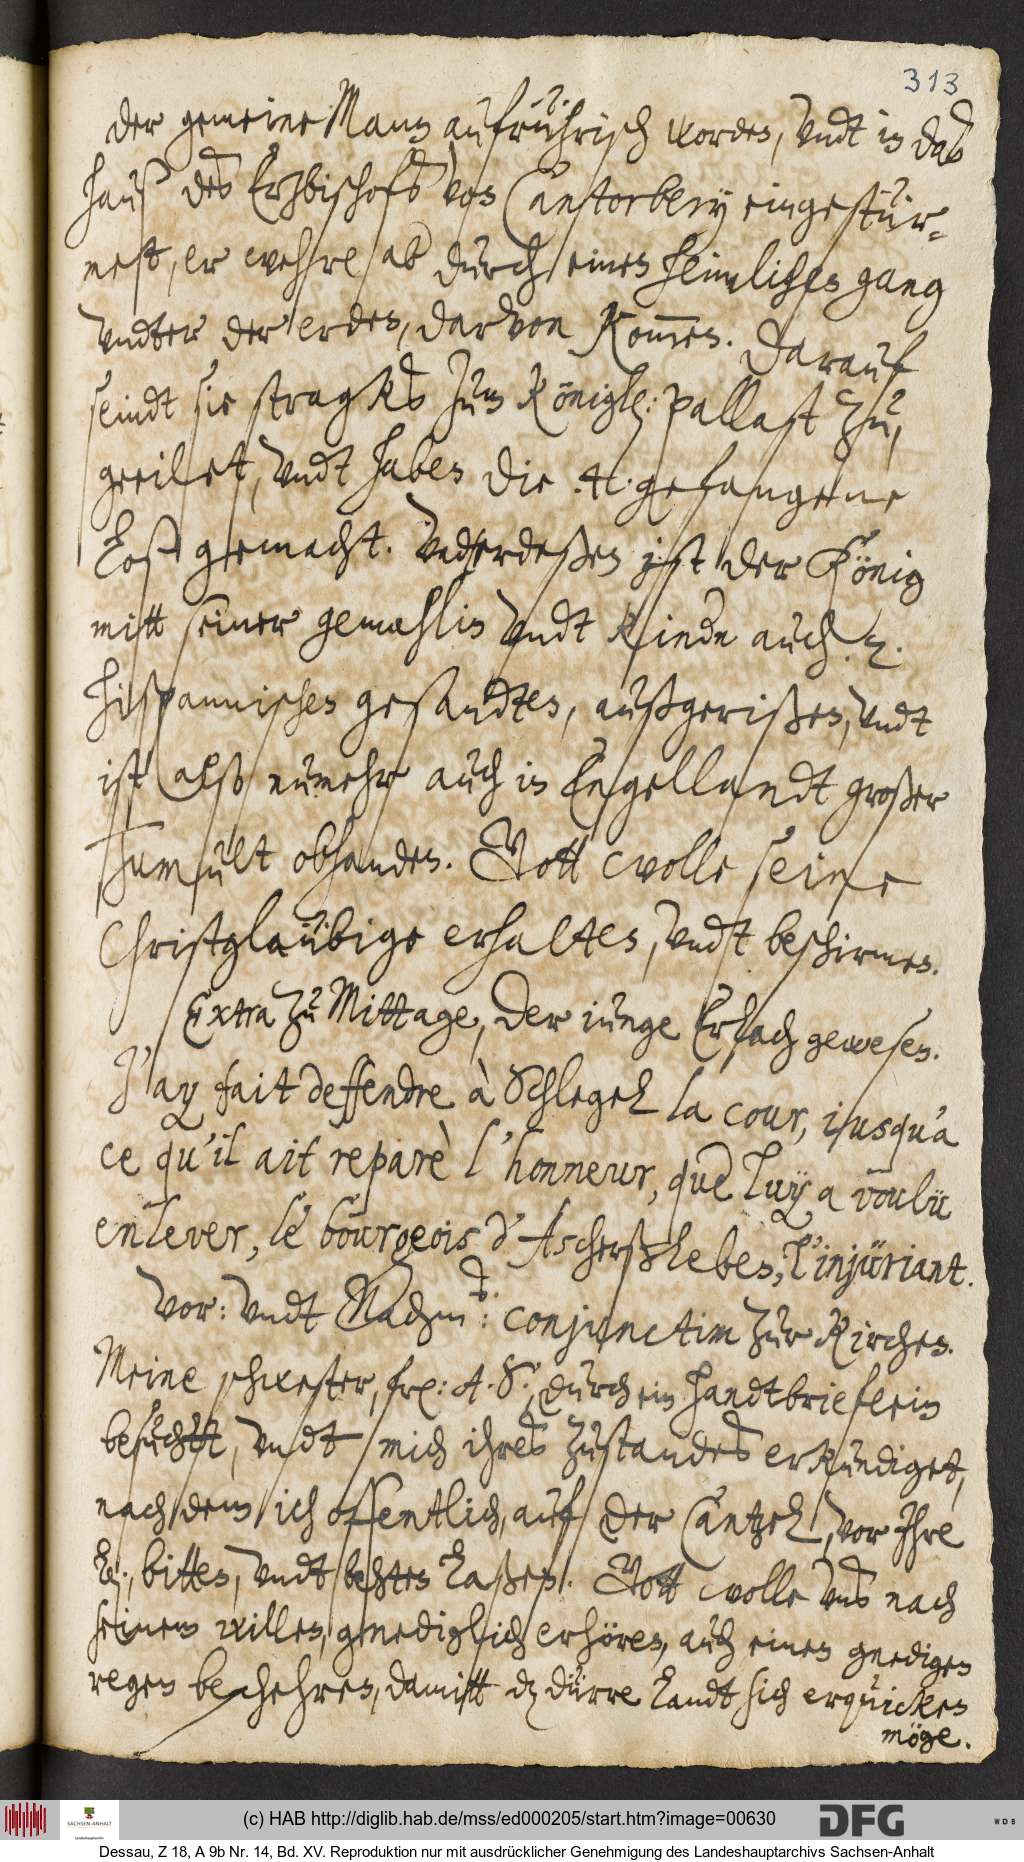 313
der gemeine Mann aufrührisch worden, vndt in daß
hauß des Ertzbischofs von Cantorbery eingestür¬
met, er wehre ab durch einen heimlichen gang
vndter der erden, darvon kommen. Darauf
seindt sie stragks zum Königl: pallast zu,
geeilet, vndt haben die .4. gefangene
loß gemacht. Vndterdeßen ist der König
mitt seiner gemahlin vndt kinde auch 2.
hispannischen gesandten, außgerißen, vndt
ist also numehr auch in Engellandt großer
Tumult obhanden. Gott wolle seine
Christglaübige erhalten, vndt beschirmen.
Extra zu Mittage, der iunge Erlach gewesen.
J'ay fait deffendre à Schlegel la cour, iusqu'a
ce qu'il ait reparè l'honneur, que luÿ a voulü
enlever, le bourgeois d'Ascherßleben, l'injüriant.
Vor: vndt Nachmd: conjunctim zur Kirchen.
Meine schwester, frl: A. S. durch ein handtbrieflein
besuchtt, vndt mich ihres zustandes erkundiget,
nach dem ich offentlich, auf der Cantzel, vor Ihre
L., bitten, vndt behten laßen. Gott wolle vns nach
seinem willen, gnediglich erhören, auch einen gnedigen
regen beschehren, damitt dz dürre Landt sich erquicken
möge.
(c) HAB http://diglib.hab.de/mss/ed000205/start.htm?image=00630
SACHSEN-ANHALT
DFG
WDB
Dessau, Z 18, A 9b Nr. 14, Bd. XV. Reproduktion nur mit ausdrücklicher Genehmigung des Landeshauptarchivs Sachsen-Anhalt